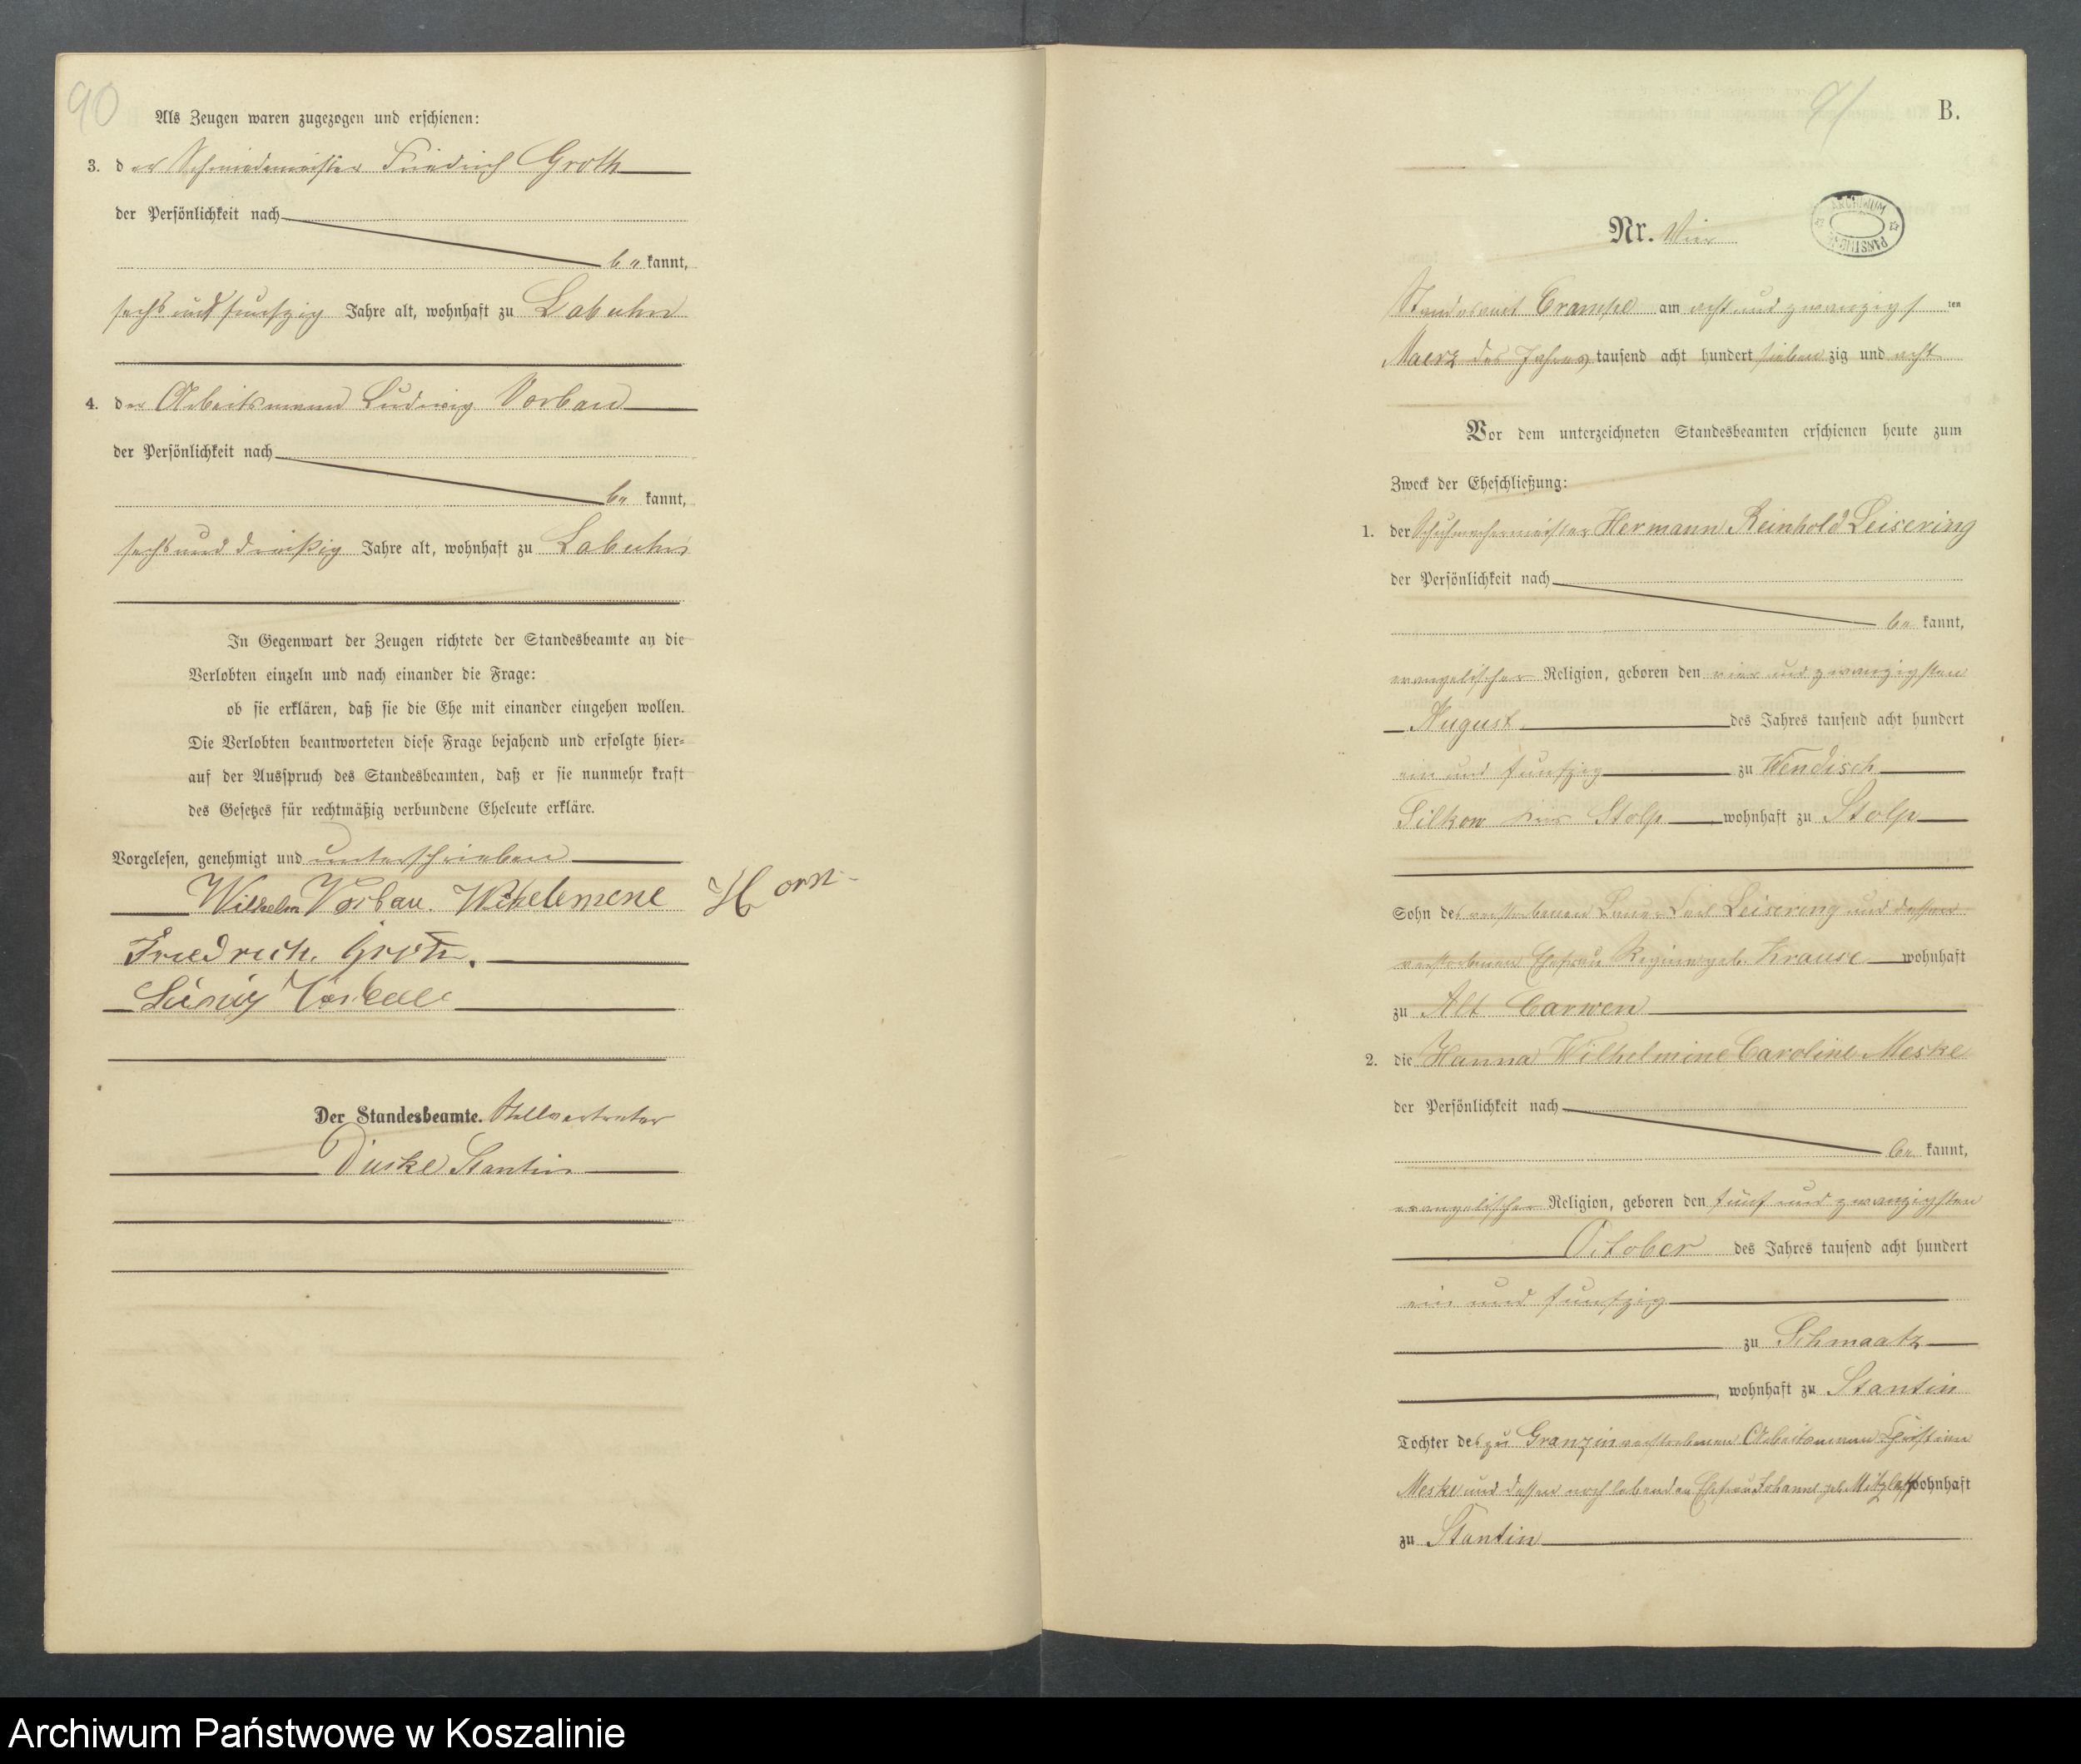 90
Als Zeugen waren zugezogen und erschienen:
3. der Schmiedemeister Friedrich Groth
der Persönlichkeit nach
be kannt,
sechs und funfzig Jahre alt, wohnhaft zu Labuhn
4. der Arbeitsmann Ludwig Vorbau
der Persönlichkeit nach
be kannt,
sechs und dreißig Jahre alt, wohnhaft zu Labuhn
In Gegenwart der Zeugen richtete der Standesbeamte an die
Verlobten einzeln und nach einander die Frage:
ob sie erklären, daß sie die Ehe mit einander eingehen wollen.
Die Verlobten beantworteten diese Frage bejahend und erfolgte hier-
auf der Ausspruch des Standesbeamten, daß er sie nunmehr kraft
des Gesetzes für rechtmäßig verbundene Eheleute erkläre.
Vorgelesen, genehmigt und unterschrieben
Wilhelm Vorbau. Wihelemene Horn
Friedrich Groth.
Ludwig Vorbau
Der Standesbeamte. Stellvertreter
Duske Stantin
91
B.
ARCHIWUM PAŃSTWOWE
Nr. Vier
Standesamt Crampe am acht und zwanzigsten
Maerz des Jahres tausend acht hundert sieben zig und acht
Vor dem unterzeichneten Standesbeamten erschienen heute zum
Zweck der Eheschließung:
1. der Schuhmachermeister Hermann Reinhold Leisering
der Persönlichkeit nach
be kannt,
evangelischer Religion, geboren den vier und zwanzigsten
August des Jahres tausend acht hundert
ein und funfzig zu Wendisch
Silkow Stolp wohnhaft zu Stolp
Sohn des verstorbenen Leisering und dessen
verstorbenen Ehefrau Regine geb. Krause wohnhaft
zu Alt Carwen
2. die Hanna Wilhelmine Caroline Meske
der Persönlichkeit nach
be kannt,
evangelischer Religion, geboren den fünf und zwanzigsten
October des Jahres tausend acht hundert
ein und funfzig
zu Schmaatz
, wohnhaft zu Stantin
Tochter des zu Granzin verstorbenen Arbeitsmann Christian
Meske und dessen noch lebenden Ehefrau Johanne geb. Mitzlaff wohnhaft
zu Stantin
Archiwum Państwowe w Koszalinie